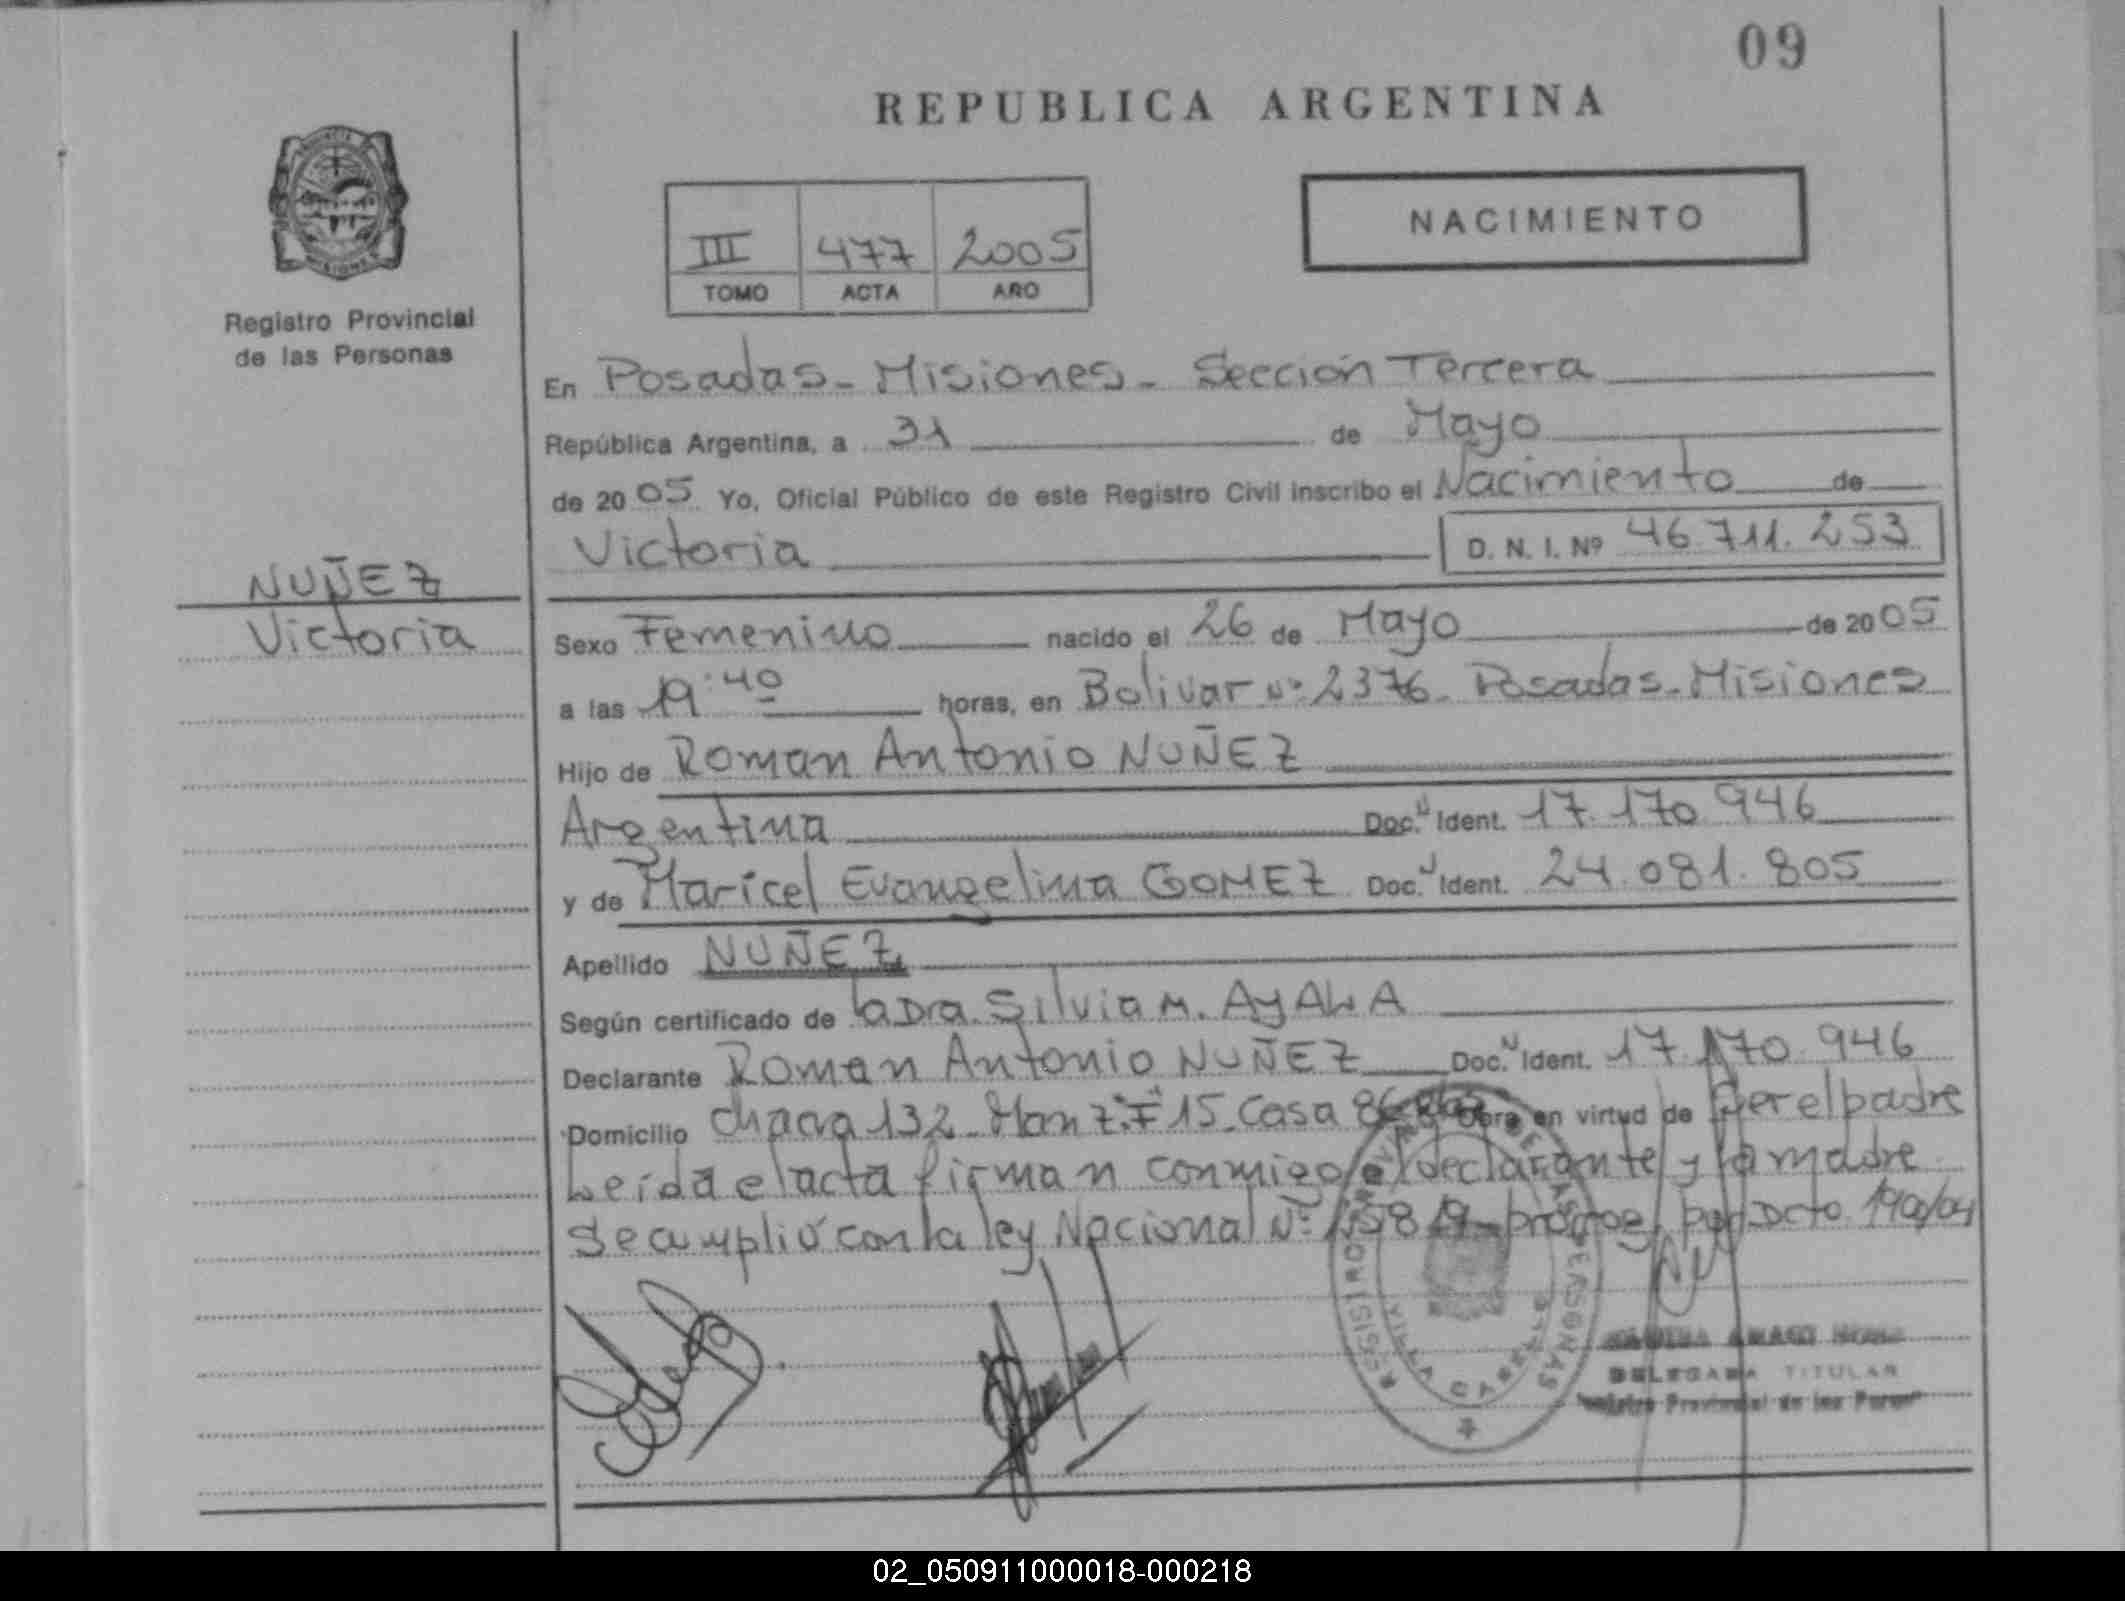 09
REPUBLICA ARGENTINA
NACIMIENTO
III 477 2005
TOMO ACTA AÑO
Registro Provincial
de las Personas
En Posadas - Misiones - Sección Tercera
República Argentina, a 31 de Mayo
de 20 05 Yo, Oficial Público de este Registro Civil inscribo el Nacimiento de
Victoria D. N. I. Nº 46.711.253
NUÑEZ
Victoria
Sexo Femenino nacido el 26 de Mayo de 20 05
a las 19:40 horas, en Bolivar Nº 2376 - Posadas - Misiones
Hijo de Roman Antonio NUÑEZ
Argentina Doc. Ident. 17.170.946
y de Maricel Evangelina GOMEZ Doc. Ident. 24.081.805
Apellido NUÑEZ
Según certificado de la Dra. Silvia M. AYALA
Declarante Roman Antonio NUÑEZ Doc. Ident. 17.170.946
Domicilio Chacra 132 - Manz. F 15 - Casa Obra en virtud de ser el padre
Leída el acta firman conmigo el declarante y la madre
Se cumplió con la ley Nacional Nº por Dcto
REGISTRO PROVINCIAL DE LAS PERSONAS
VILLA CABELLO
DELEGADA TITULAR
Registro Provincial de las Personas
02_050911000018-000218